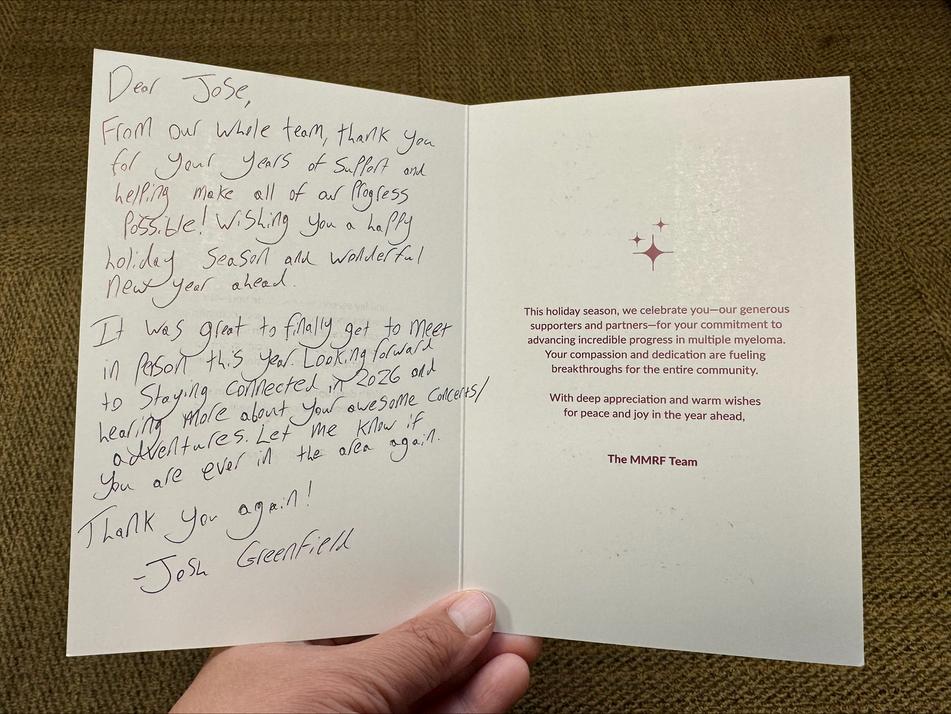 Dear Jose,
From our whole team, thank you
for your years of support and
helping make all of our progress
possible! Wishing you a happy
holiday season and wonderful
new year ahead.
It was great to finally get to meet
in person this year. Looking forward
to staying connected in 2026 and
hearing more about your awesome concerts/
adventures. Let me know if
you are ever in the area again.
Thank you again!
-Josh Greenfield
This holiday season, we celebrate you—our generous
supporters and partners—for your commitment to
advancing incredible progress in multiple myeloma.
Your compassion and dedication are fueling
breakthroughs for the entire community.
With deep appreciation and warm wishes
for peace and joy in the year ahead,
The MMRF Team